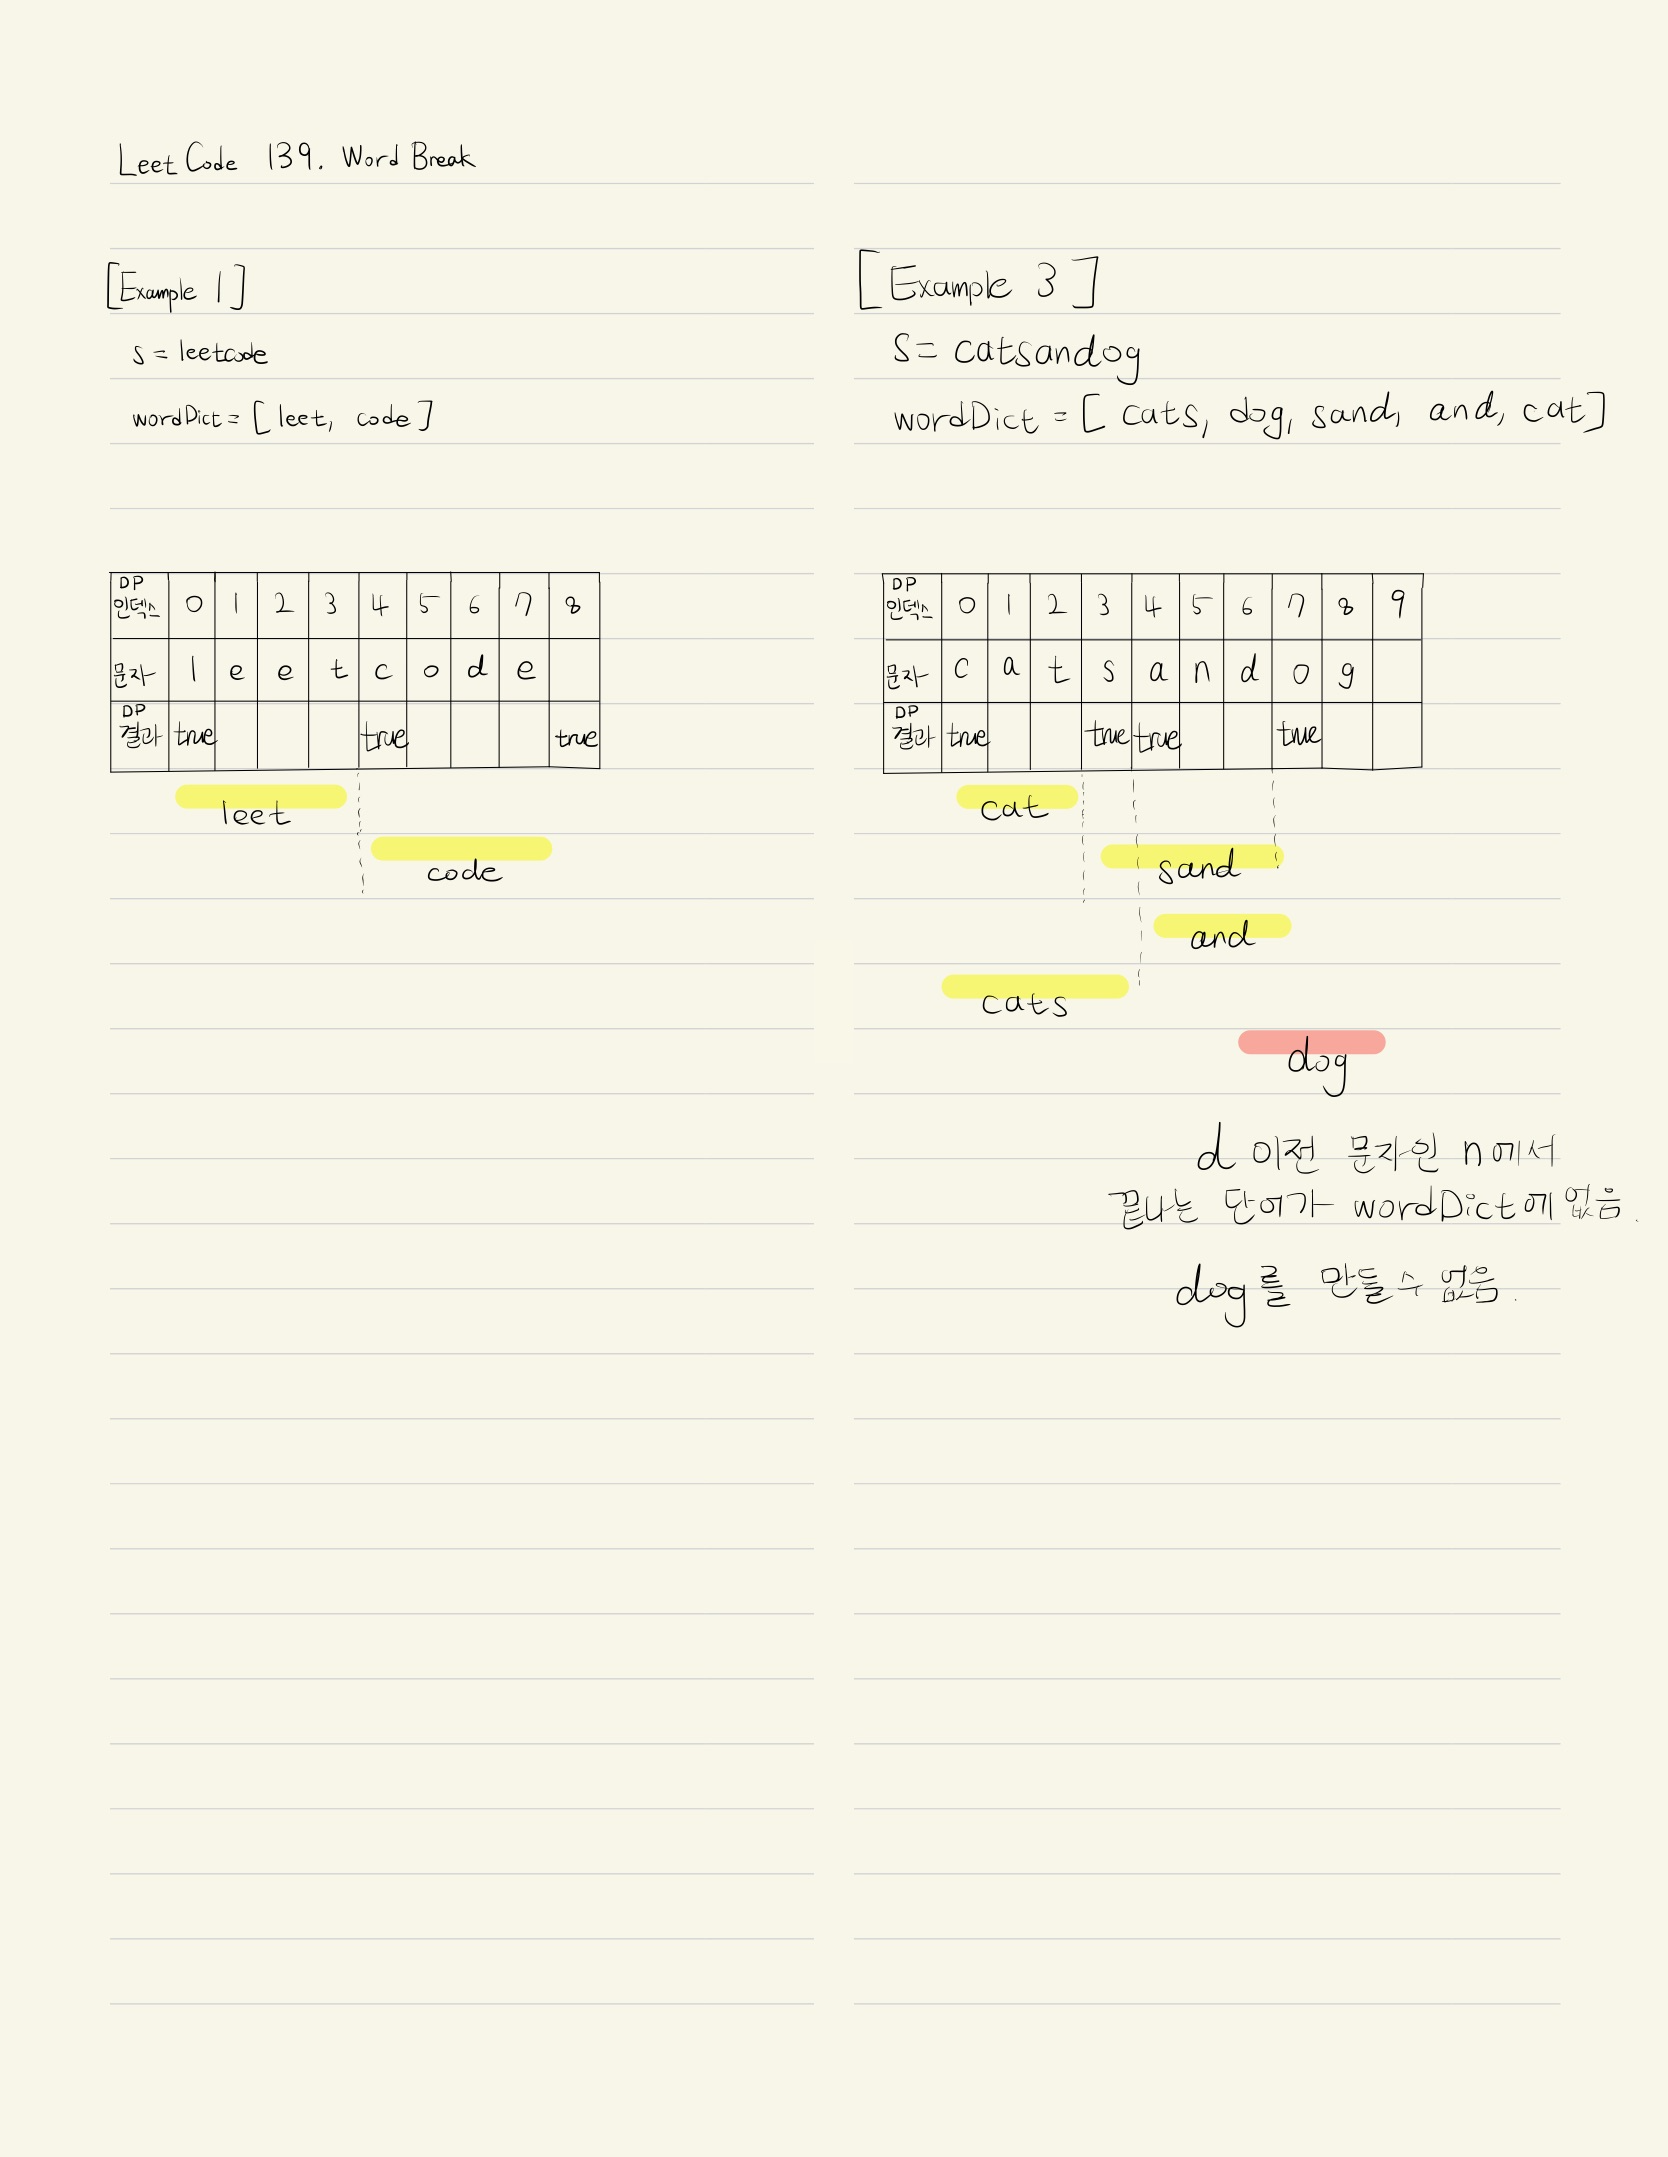 LeetCode 139. Word Break
[Example 1]
s = leetcode
wordDict = [leet, code]
DP 인덱스 0 1 2 3 4 5 6 7 8
문자 l e e t c o d e
DP 결과 true true true
leet
code
[Example 3]
S = catsandog
wordDict = [cats, dog, sand, and, cat]
DP 인덱스 0 1 2 3 4 5 6 7 8 9
문자 c a t s a n d o g
DP 결과 true true true true
cat
sand
and
cats
dog
d 이전 문자인 n에서
끝나는 단어가 wordDict에 없음.
dog를 만들 수 없음.